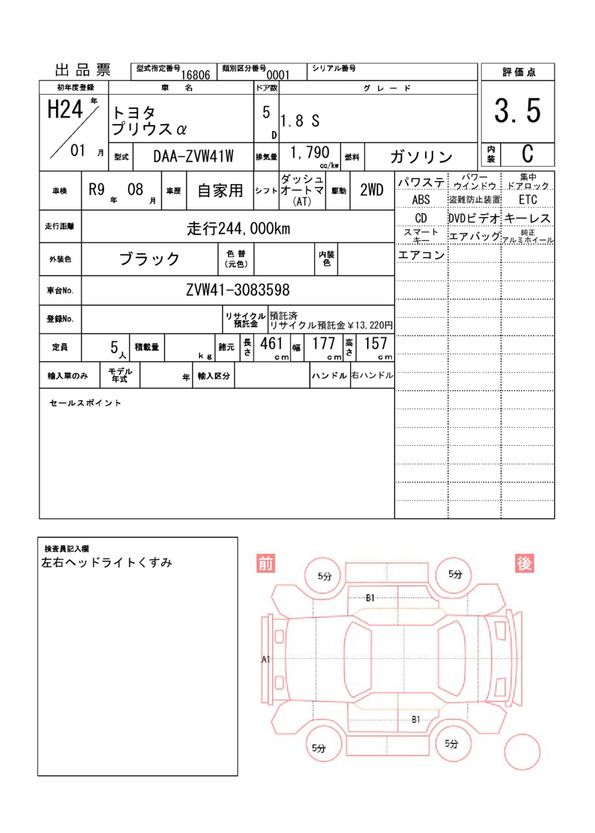 出品票 型式指定番号 16806 類別区分番号 0001 シリアル番号 評価点
初年度登録 車名 ドア数 グレード 3.5
H24年 トヨタ 5D 1.8 S
プリウスα
01月 型式 DAA-ZVW41W 排気量 1,790 cc/kw 燃料 ガソリン 内装 C
車検 R9年 08月 車歴 自家用 シフト ダッシュオートマ(AT) 駆動 2WD
パワステ パワーウインドウ 集中ドアロック
ABS 盗難防止装置 ETC
走行距離 走行244,000km
CD DVDビデオ キーレス
スマートキー エアバッグ 純正アルミホイール
外装色 ブラック 色替(元色) 内装色
エアコン
車台No. ZVW41-3083598
登録No. リサイクル預託金 預託済
リサイクル預託金¥13,220円
定員 5人 積載量 kg 諸元 長さ 461cm 幅 177cm 高さ 157cm
輸入車のみ モデル年式 年 輸入区分 ハンドル 右ハンドル
セールスポイント
検査員記入欄
左右ヘッドライトくすみ
前 後
5分 5分
B1
A1
B1
5分 5分